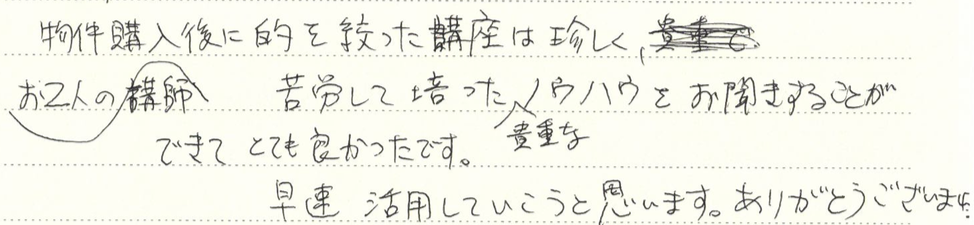 物件購入後に的を絞った講座は珍しく、
お2人の講師 苦労して培ったノウハウをお聞きすることが
貴重な
できて とても良かったです。
早速 活用していこうと思います。ありがとうございます。